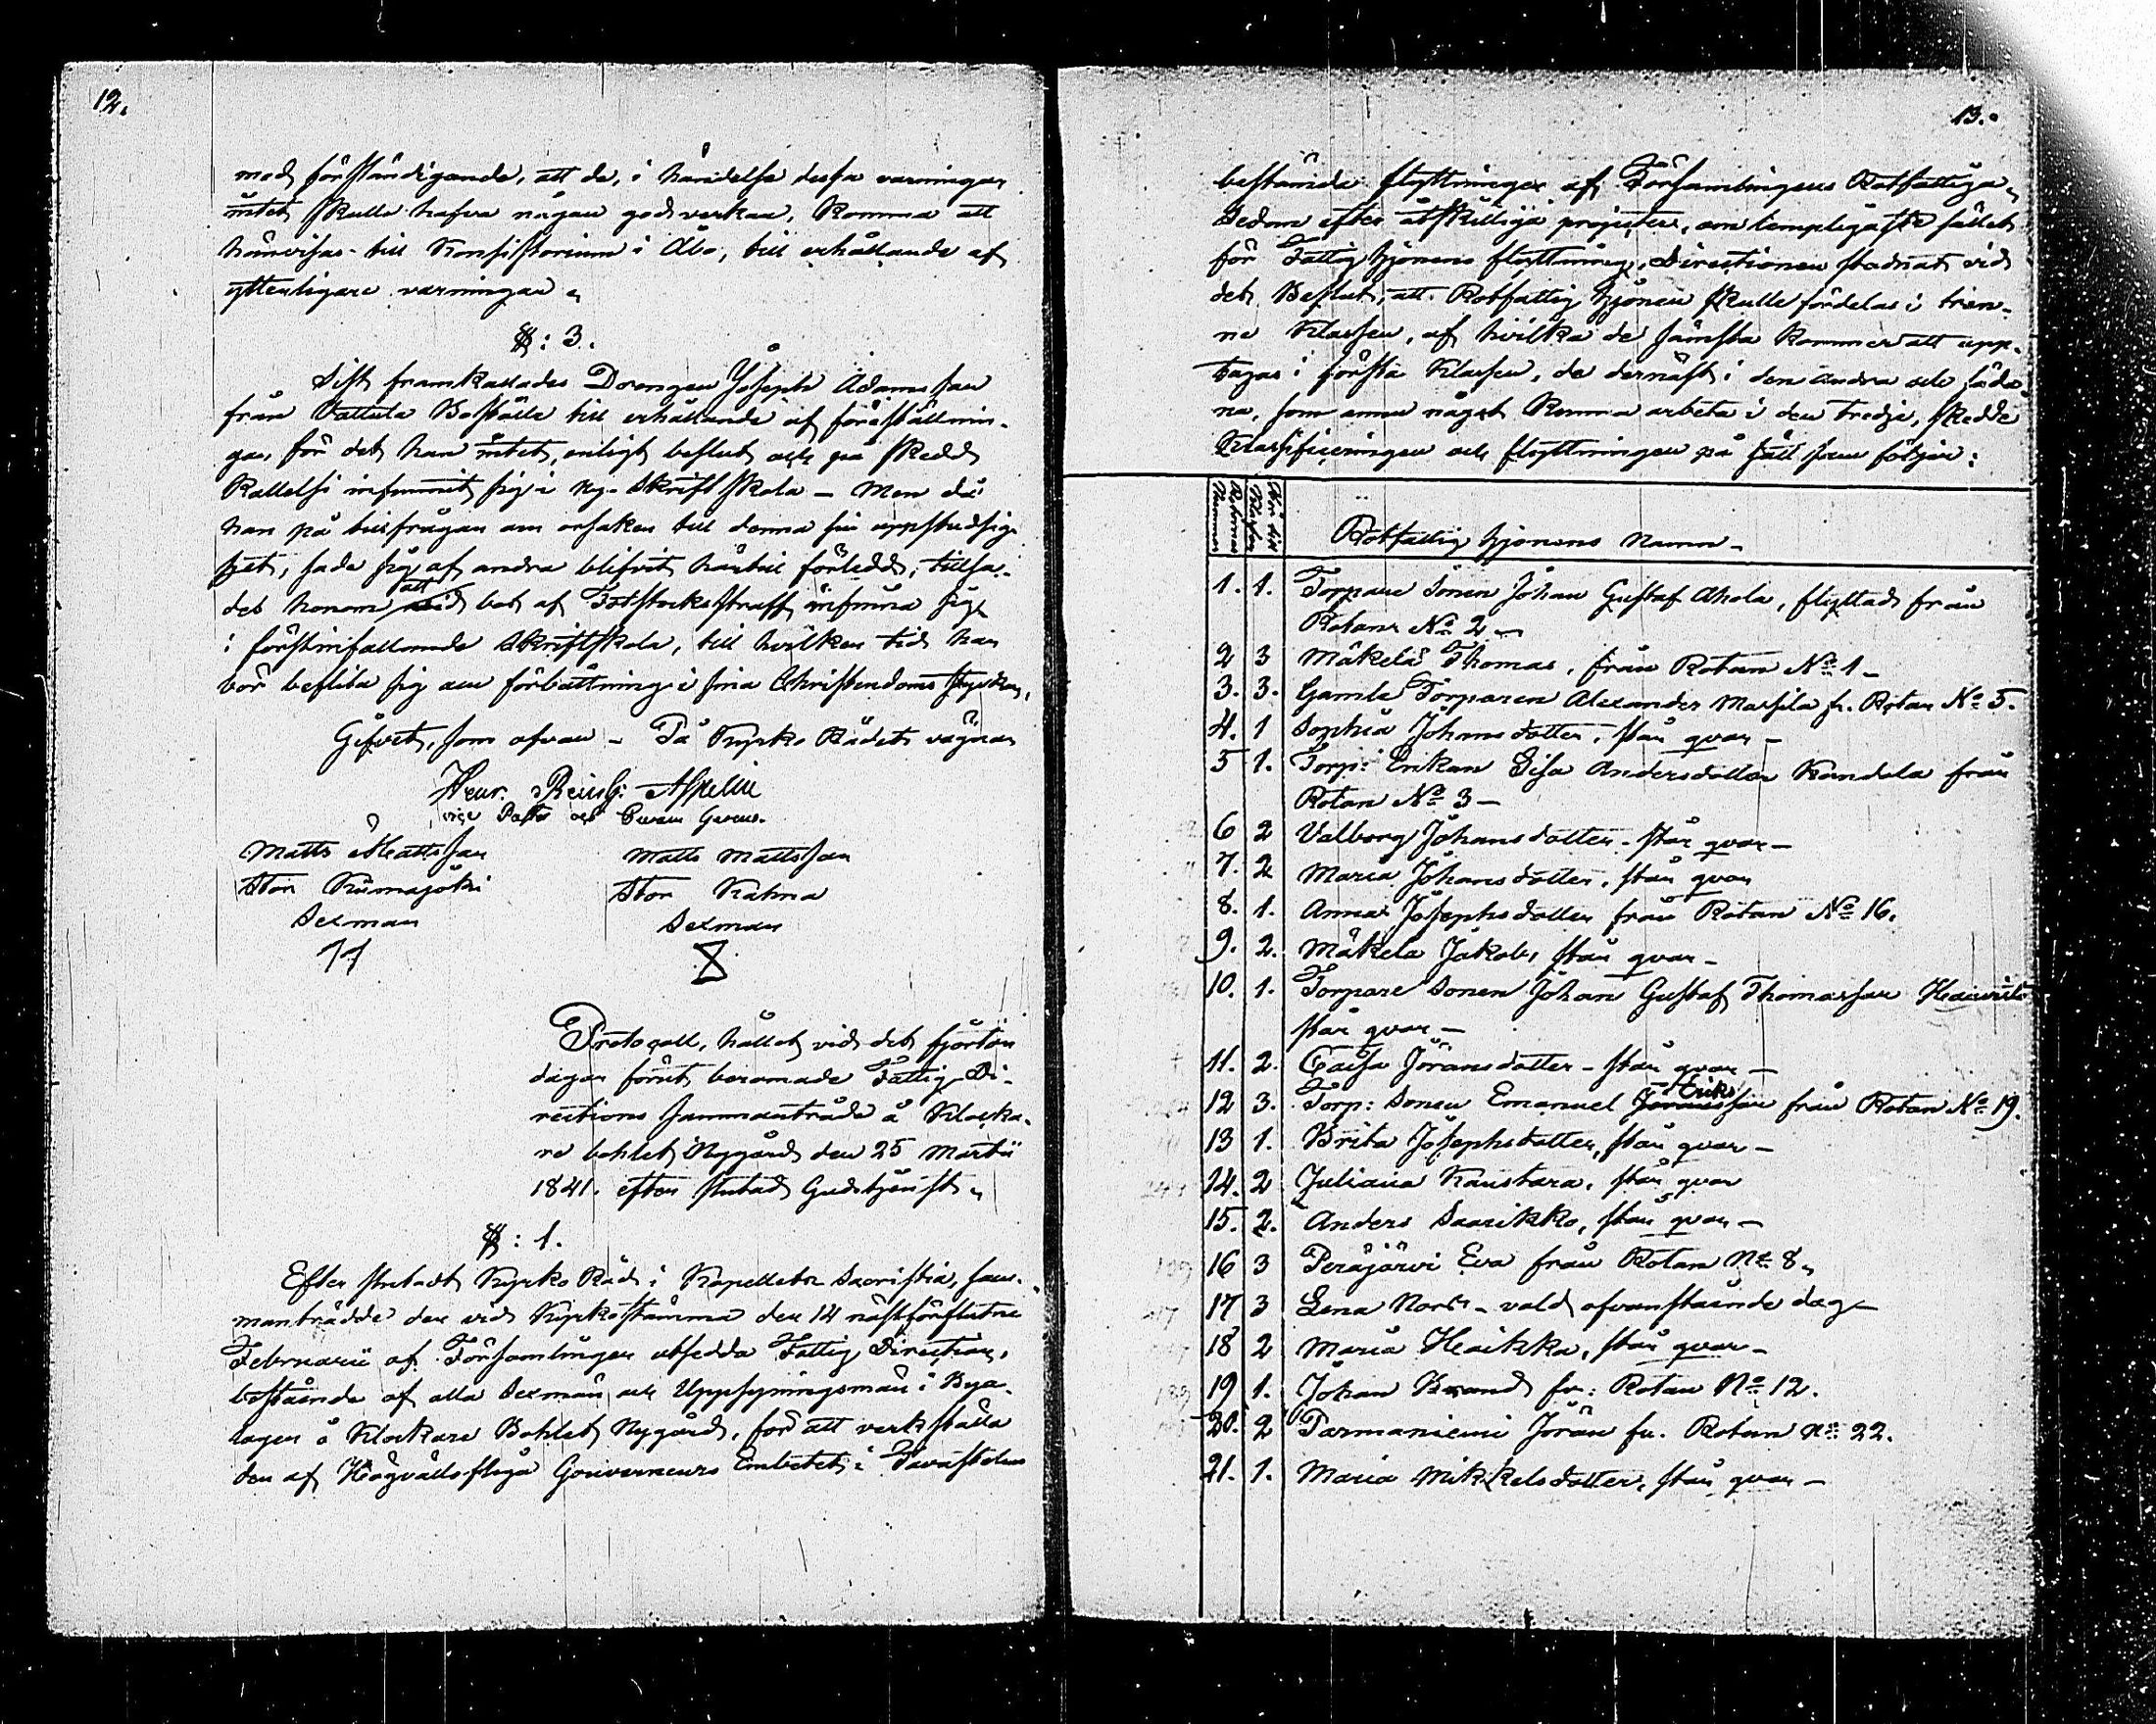 12.
med förständigande, att de, i händelse dessa varningar
intet skulle hafva någon god verkan, komma att
hänvisas till Konsistorium i Åbo, till erhållande af
ytterligare varningar
§: 3.
Sist framkallades Drengen Joseph Adamsson
från Vallula Boställe till erhållande af föreställnin-
gar, för det han intet, enligt beslut och på skedd
kallelse infunnit sig i ny-Skriftskola – Men då
han på tillfrågan om orsaken till denna sin uppstudsig-
het, sade sig af andra blifvit härtill förledd, tillsa-
des honom att vid bot af Fotstocksstraff infinna sig
i förstinfallande Skriftskola, till hvilken tid han
bör beflita sig om förbättring i sina Christendoms stycken,
Gifvet, som ofvan – På Kyrko Rådets vägnar
Henr. Reinh: Aspelin
vice Pastor
Matts Mattsson Matts Mattsson
Stor Kiimajoki Stor Kahma
Sexman Sexman
Protocoll, hållet vid det fjorton
dagar förut beramade Fattig Di-
rections sammanträde å Klocka-
re bohlet Nygård den 25 Martii
1841. efter slutad Gudstjenst
§: 1.
Efter slutadt Kyrko Råd i Kapellets Sacristia, sam-
manträdde den vid Kyrkostämma den 14 nästförflutne
Februarii af Församlingen utsedda Fattig Direction,
bestående af alla Sexmän och Uppsyningsmän i Bya-
lagen å Klockare Bohlet Nygård, för att verkställa
den af Högvällofliga Gouverneurs Embetet i Tavastehus
13.
bestämde flyttningen af Församlingens Rotfattiga
Sedan efter åtskilliga projecter, om lämpligaste sättet
för Fattig hjonens flyttning, Directionen stadnat vid
det Beslut, att Rotfattig hjonen skulle fördelas i tren-
ne Klasser, af hvilka de sämsta kommer att upp-
tagas i första Klassen, de dernäst i den andra och såda-
na, som ännu något kunna arbeta i den tredje, skedde
Klassificeringen och flyttningen på sätt som följer:
Rotarnes Nummer
Hör till Klassen
Rotfattig hjonens namn –
1. 1. Torpare Sonen Johan Gustaf Ahola, flyttad från
Rotan No 2 –
2 3 Mäkelä Thomas, från Rotan No 1 –
3. 3. Gamle Torparen Alexander Massila fr. Rotan No 5.
4. 1 Sophia Johansdotter, står qvar –
5 1. Torp: Enkan Lisa Andersdotter Kandola från
Rotan No 3 –
6 2 Valborg Johansdotter – står qvar –
7. 2 Maria Johansdotter, står qvar
8. 1. Anna Josephsdotter från Rotan No 16.
9. 2. Mäkelä Jakob, står qvar –
10. 1. Torpare Sonen Johan Gustaf Thomasson
står qvar –
11. 2. Caisa Jöransdotter – står qvar –
12 3. Torp: Sonen Emanuel Jöransson Eriks från Rotan No 19.
13 1. Brita Josephsdotter, står qvar –
14. 2 Juliana Kanstara, står qvar
15. 2. Anders Saarikko, står qvar –
16 3 Peräjärvi Eva från Rotan No 8
17 3 Lena Norr – vald ofvanstående dag –
18 2 Maria Heikka, står qvar –
19 1. Johan Brand fr: Rotan No 12.
20. 2 Parmaniemi Jöran fr. Rotan No 22.
21. 1. Maria Mikkelsdotter, står qvar –